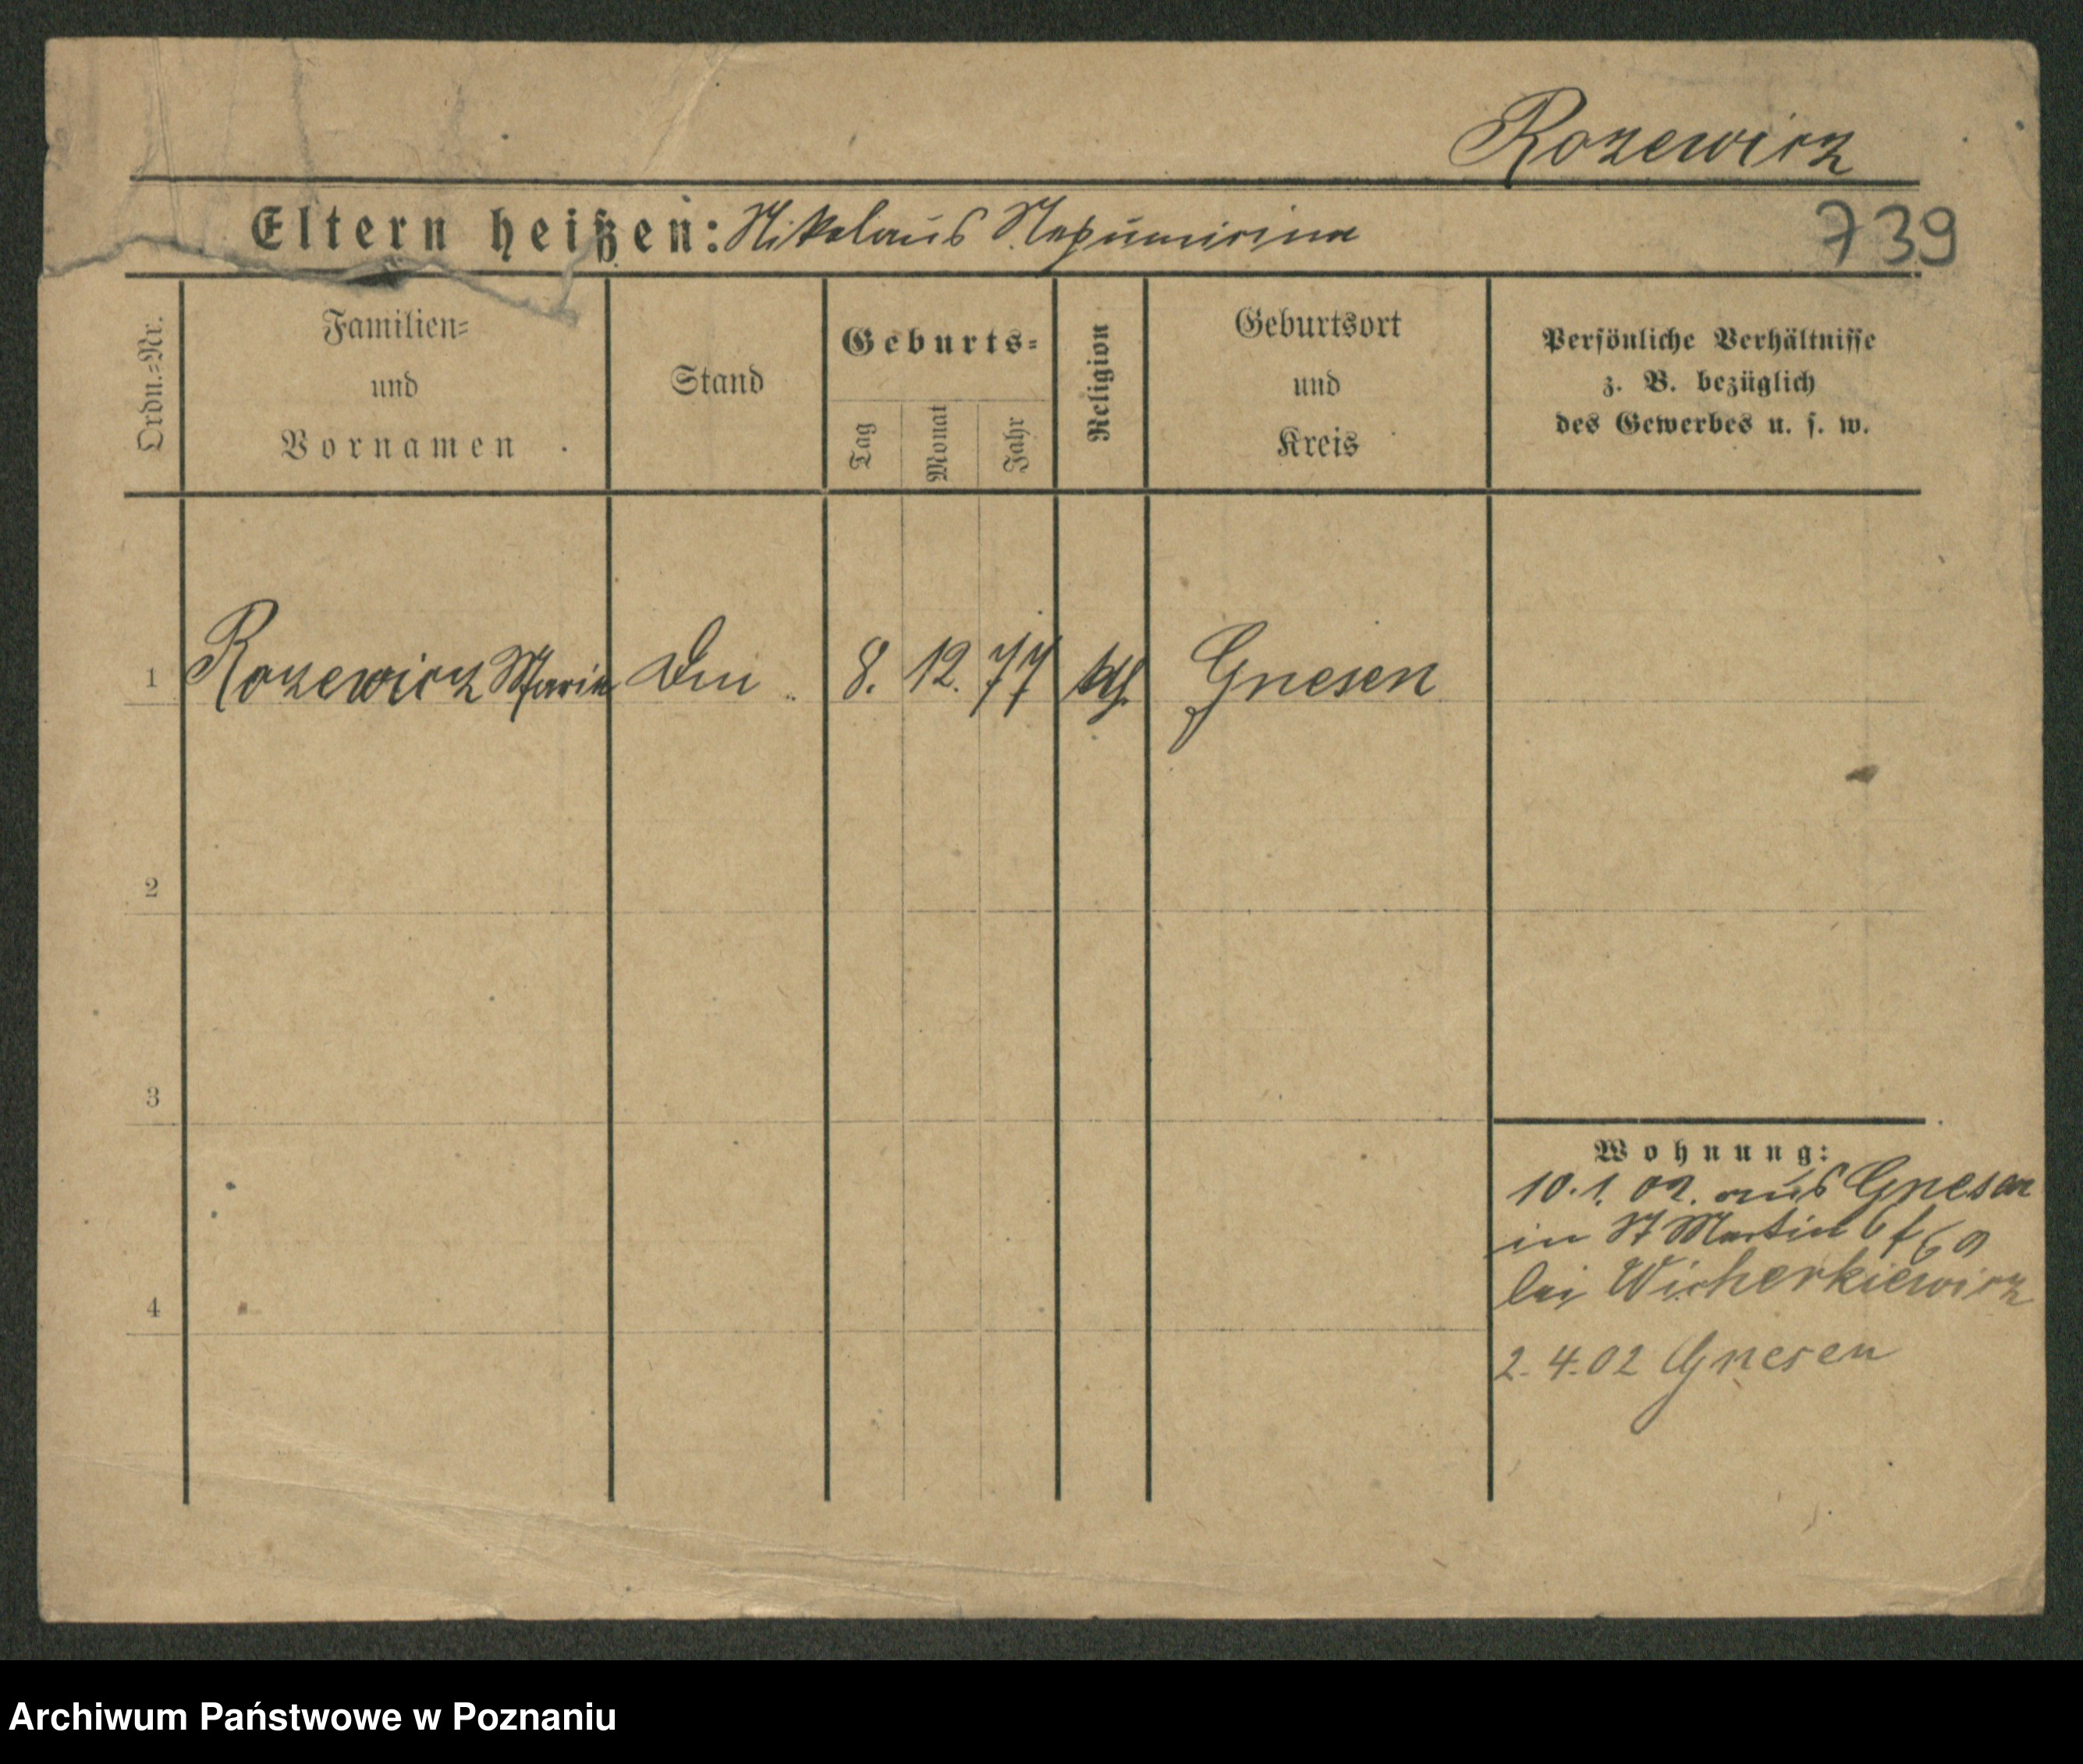 Rozewicz
Eltern heißen: Nikolaus Nepumicina
739
Ordn.=Nr.
Familien=
und
Vornamen
Stand
Geburts=
Tag
Monat
Jahr
Religion
Geburtsort
und
Kreis
Persönliche Verhältnisse
z. B. bezüglich
des Gewerbes u. s. w.
1 Rozewicz Maria 8. 12. 77 kth. Gnesen
2
3
4
Wohnung:
10.1.02. aus Gnesen
in St Martin
bei Wicherkiewicz
2.4.02 Gnesen
Archiwum Państwowe w Poznaniu